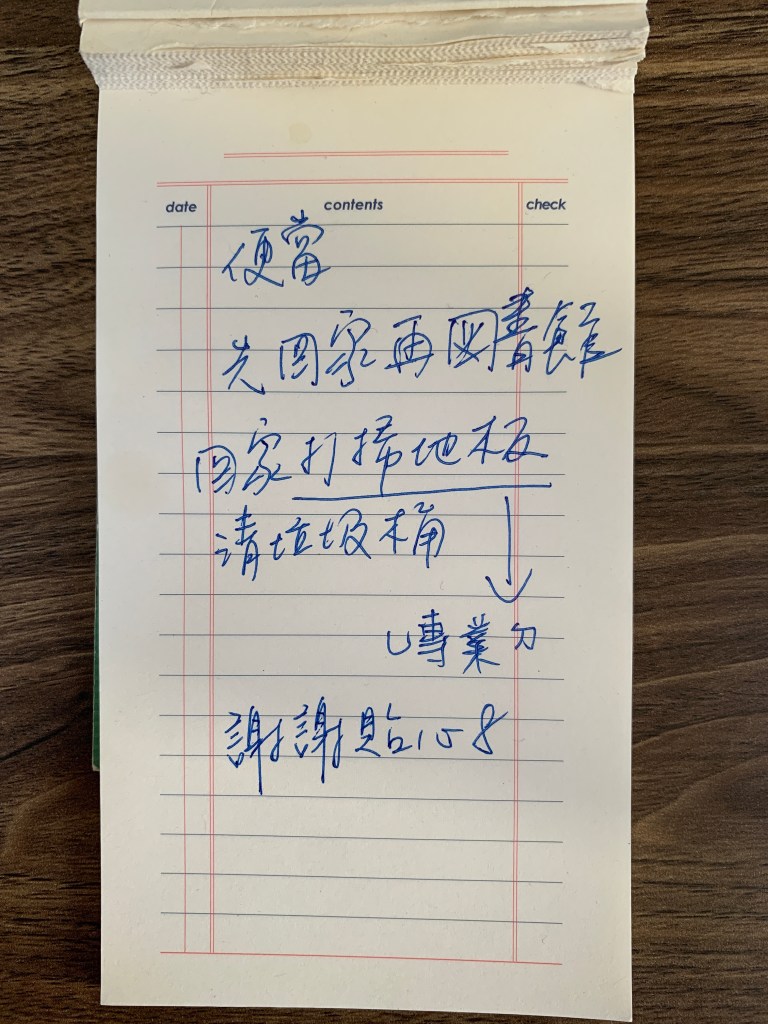 date contents check
便當
先回家再図書館
回家打掃地板
請垃圾桶
專業
謝謝貼心